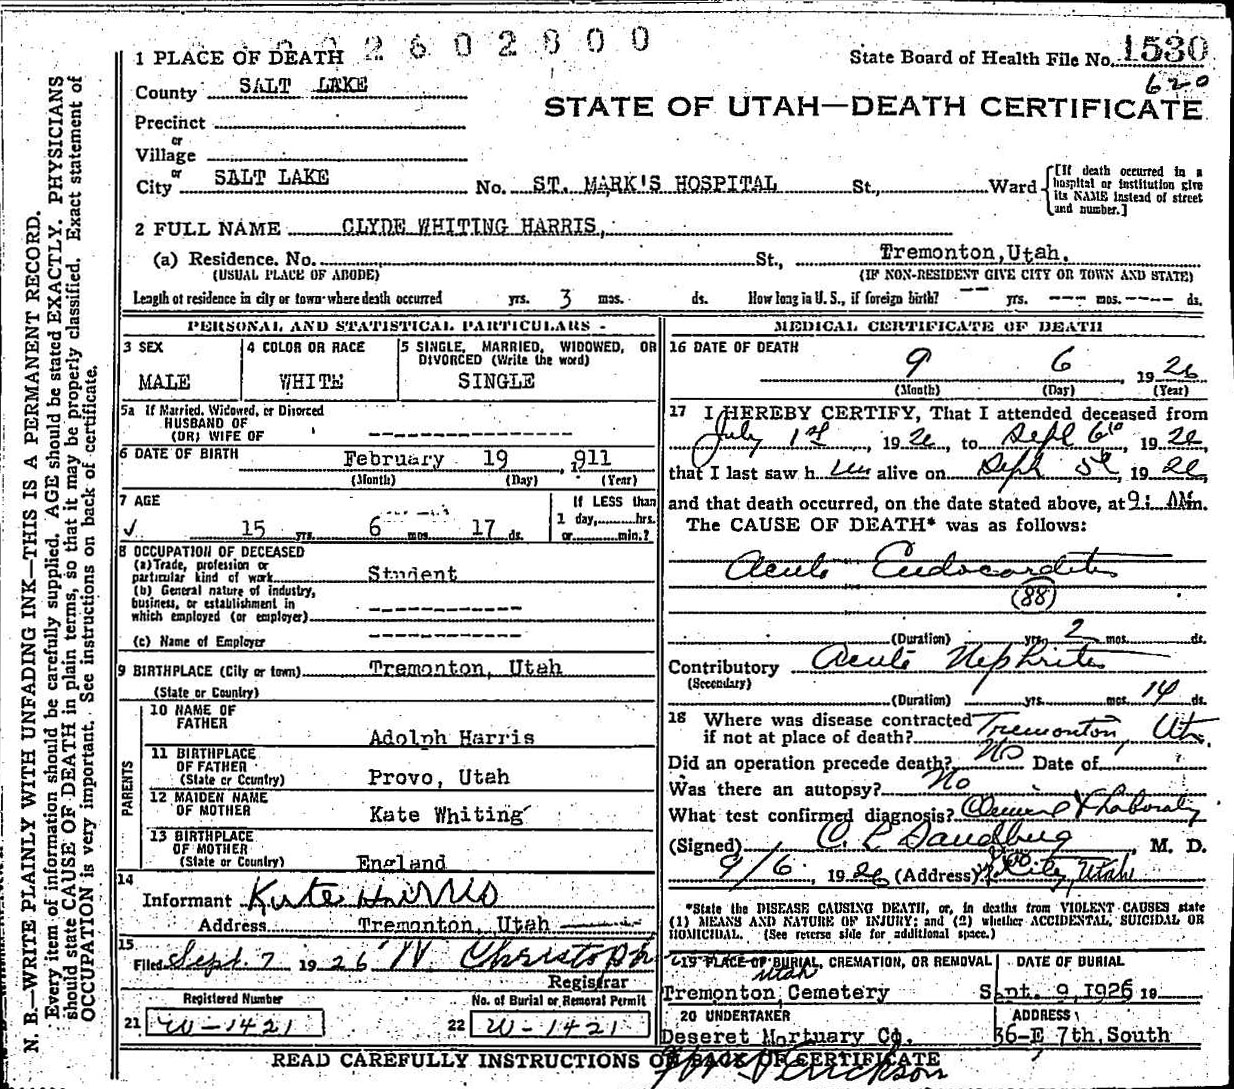 002602800
1 PLACE OF DEATH
State Board of Health File No. 1530
620
County SALT LAKE
STATE OF UTAH—DEATH CERTIFICATE
Precinct
or
Village
or
City SALT LAKE No. ST. MARK'S HOSPITAL St., Ward
[If death occurred in a hospital or institution give its NAME instead of street and number.]
2 FULL NAME CLYDE WHITING HARRIS,
(a) Residence. No. St., Tremonton, Utah.
(USUAL PLACE OF ABODE) (IF NON-RESIDENT GIVE CITY OR TOWN AND STATE)
Length of residence in city or town where death occurred yrs. 3 mos. ds. How long in U. S., if foreign birth? -- yrs. --- mos. ---- ds.
PERSONAL AND STATISTICAL PARTICULARS
3 SEX
MALE
4 COLOR OR RACE
WHITE
5 SINGLE, MARRIED, WIDOWED, OR DIVORCED (Write the word)
SINGLE
5a If Married, Widowed, or Divorced
HUSBAND OF
(OR) WIFE OF
6 DATE OF BIRTH February 19, 1911
(Month) (Day) (Year)
7 AGE
15 yrs. 6 mos. 17 ds.
If LESS than
1 day, hrs.
or min.?
8 OCCUPATION OF DECEASED
(a) Trade, profession or
particular kind of work Student
(b) General nature of industry,
business, or establishment in
which employed (or employer)
(c) Name of Employer
9 BIRTHPLACE (City or town) Tremonton, Utah
(State or Country)
PARENTS
10 NAME OF
FATHER Adolph Harris
11 BIRTHPLACE
OF FATHER
(State or Country) Provo, Utah
12 MAIDEN NAME
OF MOTHER Kate Whiting
13 BIRTHPLACE
OF MOTHER
(State or Country) England
14
Informant Kate Harris
Address Tremonton, Utah
15
Filed Sept. 7 1926 W Christoph
Registrar
Registered Number
21 W-1421
No. of Burial or Removal Permit
22 W-1421
MEDICAL CERTIFICATE OF DEATH
16 DATE OF DEATH
9 6, 1926
(Month) (Day) (Year)
17 I HEREBY CERTIFY, That I attended deceased from
July 1st, 1926, to Sept 6th, 1926,
that I last saw him alive on Sept 5th, 1926,
and that death occurred, on the date stated above, at 9: AM.
The CAUSE OF DEATH* was as follows:
Acute Endocarditis
(88)
(Duration) yrs. 2 mos. ds.
Contributory Acute Nephritis
(Secondary)
(Duration) yrs. mos. 14 ds.
18 Where was disease contracted
if not at place of death? Tremonton, Utah
Did an operation precede death? No Date of
Was there an autopsy? No
What test confirmed diagnosis? Clinical & Laboratory
(Signed) M. D.
9/6, 1926 (Address) City, Utah
*State the DISEASE CAUSING DEATH, or, in deaths from VIOLENT CAUSES state
(1) MEANS AND NATURE OF INJURY; and (2) whether ACCIDENTAL, SUICIDAL OR
HOMICIDAL. (See reverse side for additional space.)
19 PLACE OF BURIAL, CREMATION, OR REMOVAL
Utah
Tremonton, Cemetery
DATE OF BURIAL
Sept. 9, 1926 19
20 UNDERTAKER
Deseret Mortuary Co.
ADDRESS
36-E 7th, South
READ CAREFULLY INSTRUCTIONS ON BACK OF CERTIFICATE
N. B.—WRITE PLAINLY WITH UNFADING INK—THIS IS A PERMANENT RECORD.
Every item of information should be carefully supplied. AGE should be stated EXACTLY. PHYSICIANS
should state CAUSE OF DEATH in plain terms, so that it may be properly classified. Exact statement of
OCCUPATION is very important. See instructions on back of certificate.